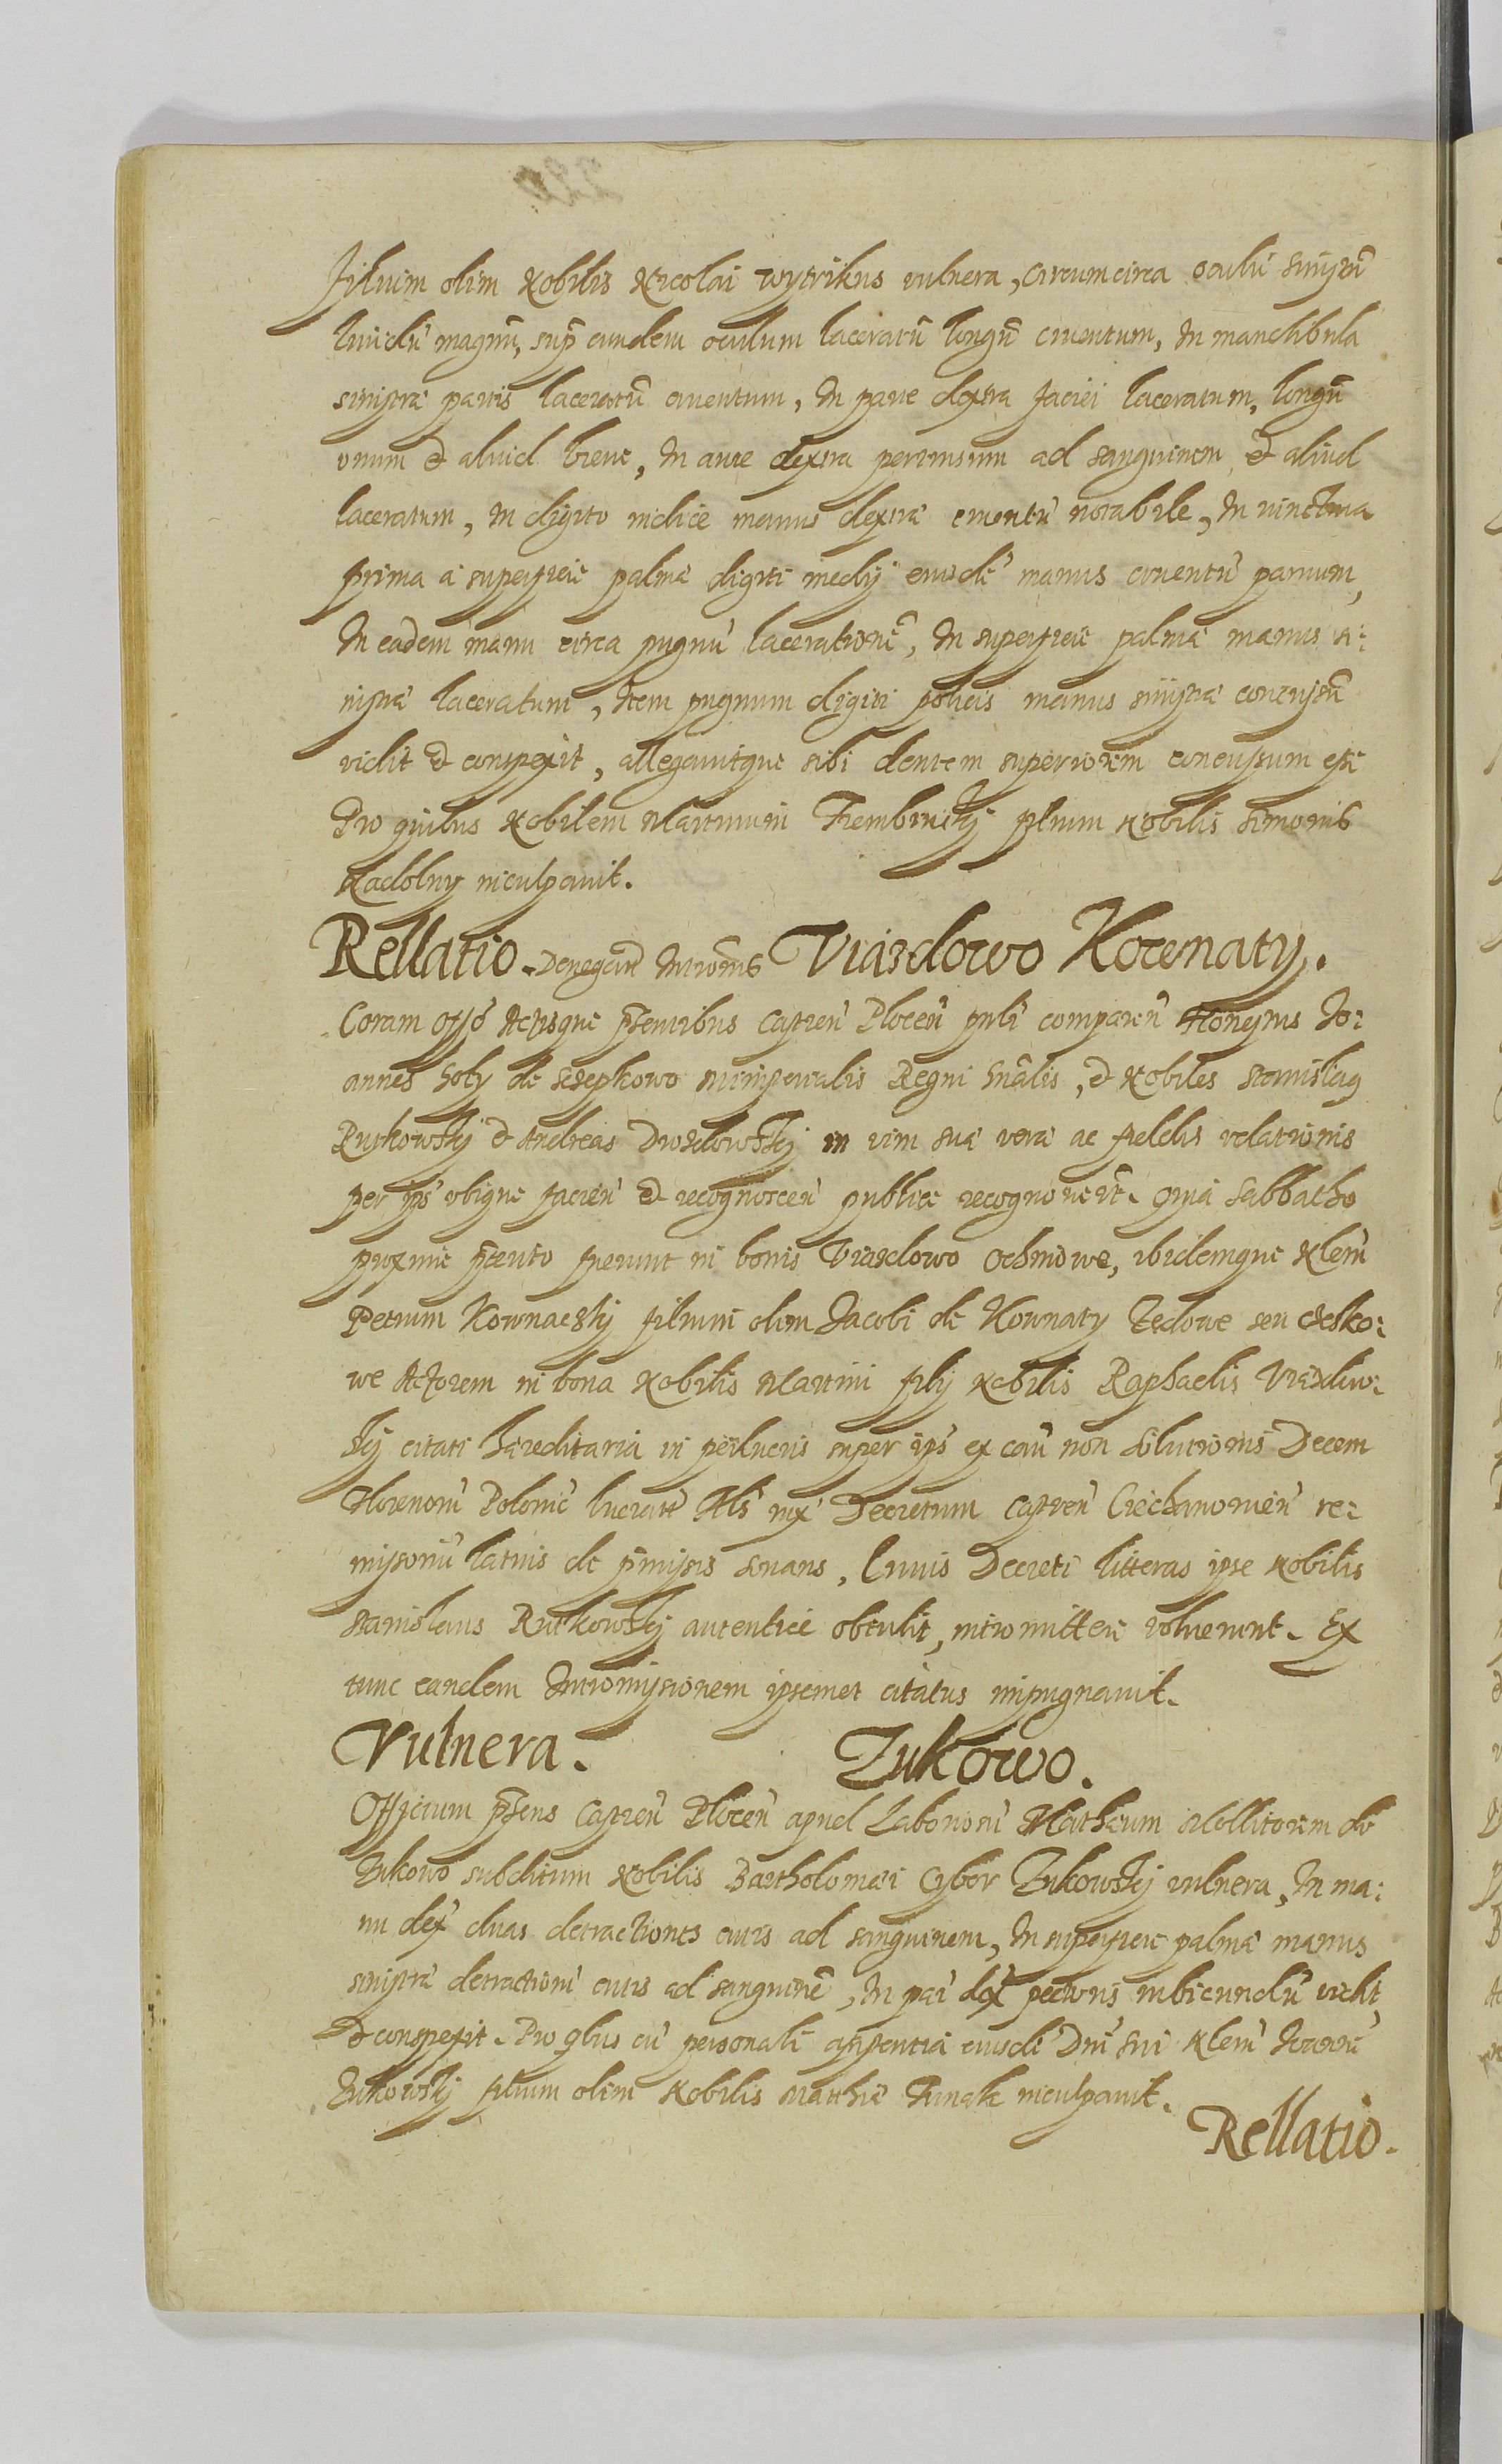 filium olim Nobilis Nicolai wytrikus vulnera, circumcirca oculū sinistrū
lividū magnū, sup eundem oculum laceratū longū cruentum, In mandibula
sinistræ partis laceratū cruentum, In parte dextra faciei laceratum, longū
vnum et aliud breue, In aure dextra percussum ad sanguinem et aliud
laceratum, in digito indice manus dextræ cruentū notabile, In iunctura
prima a superficie palmæ digiti medij eiusdē manus cruentū paruum,
In eadem manu circa pugnū lacerationē, In superficie palmæ manus si:
nistræ laceratum, Item pugnum digiti policis manus sinistræ concussū
vidit et conspexit, allegavitque sibi dentem superiorem concussum esse
Pro quibus Nobilem Martinum Trembinskj filium Nobilis Simonis
Nadolny inculpavit.
Rellatio. Denegatæ Intromis Viazdowo Kownaty.
Coram offō Actisque pñtibus Castreñ Ploceñ publ compareñ Honestus Jo:
annes Soly de Szczepkowo ministerialis Regni Gñalis, et Nobiles Stanislaus
Rutkowskj et Andreas Drozdowskj in vim suæ veræ ac fidelis relationis
per ips vbique facieñ et recognosceñ publice recognoverūt. Quia Sabbatho
proxime præterito fuerunt in bonis Viazdowo Ochniowe, ibidemque Nlem
Petrum Kownaczkj filium olim Jacobi de Kownaty Zedowe seu Czesko:
we Actorem in bona Nobilis Martini filij Nobilis Raphaelis Viazdow:
skj citati hæreditaria in perlucris super ips ex cau non solutionis Decem
Florenorū Polonic lucratis Als iux Decretum Castreñ Ciechanowieñ re:
missoriū latius de præmissis sonans, Cuius Decreti litteras ipse Nobilis
Stanislaus Rutkowskj autentice obtulit, intromittere voluerunt. Ex
tunc eandem Intromissionem ipsemet citatus impugnavit.
Vulnera. Zukowo.
Officium pñsens Castreñ Ploceñ apud Laboriosū Mathæum Molitorem de
Zukowo subditum Nobilis Bartholomæi Cybor Zukowskj vulnera, In ma:
nu dex duas detractiones cutis ad sanguinem, In superficie palmæ manus
sinistræ detractionē cutis ad sanguinē, In par dex pectoris rubicundū vidit
et conspexit. Pro qbus cū personali assistentia eiusdē Dñi sui Nlem
Zukowskj filium olim Nobilis Matthiæ inculpavit.
Rellatio.